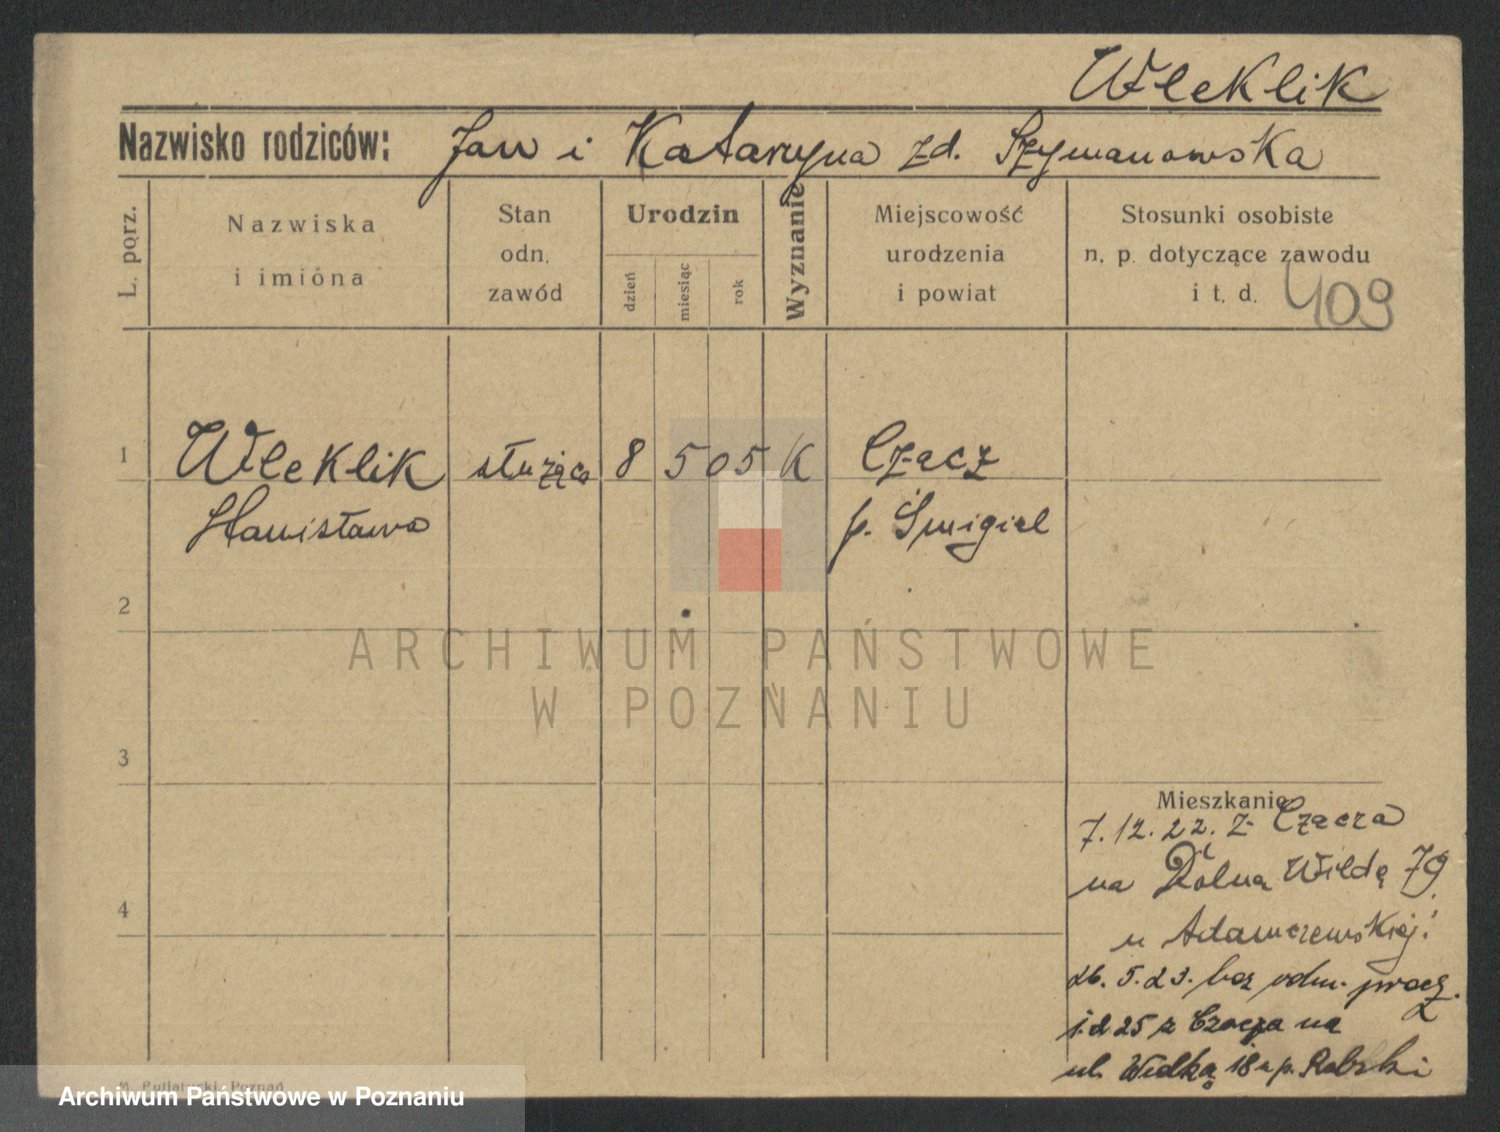 Wleklik
Nazwisko rodziców: Jan i Kataryna zd. Szymanowska
L. porz.
Nazwiska
i imióna
Stan
odn.
zawód
Urodzin
dzień
miesiąc
rok
Wyznanie
Miejscowość
urodzenia
i powiat
Stosunki osobiste
n. p. dotyczące zawodu
i t. d.
409
1 Wleklik służąca 8 5 05 K Czacz
Stanisława p. Śmigiel
2
ARCHIWUM PAŃSTWOWE
W POZNANIU
3
Mieszkanie
7.12.22. z Czacza
na Dolną Wildę 79
4
u Adamczewskiej.
26.5.23. bez odm. procz.
z Czacza na
ul. Wielką 18
Archiwum Państwowe w Poznaniu